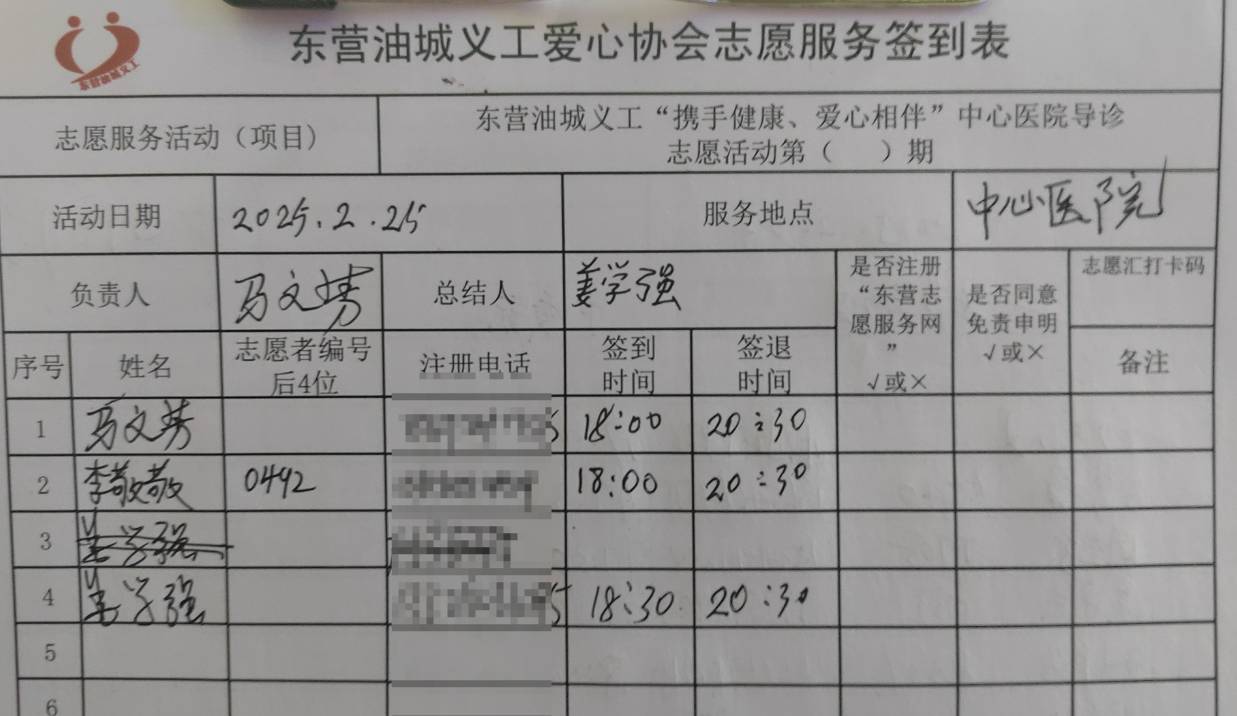 东营油城义工
东营油城义工爱心协会志愿服务签到表
志愿服务活动（项目）
东营油城义工“携手健康、爱心相伴”中心医院导诊
志愿活动第（ ）期
活动日期
2025.2.25
服务地点
中心医院
负责人
马文芳
总结人
姜学强
是否注册
“东营志
愿服务网
”
√或×
是否同意
免责申明
√或×
志愿汇打卡码
备注
序号
姓名
志愿者编号
后4位
注册电话
签到
时间
签退
时间
1
马文芳
18:00
20:30
2
李敬敬
0492
18:00
20:30
3
姜学强
4
姜学强
18:30
20:30
5
6